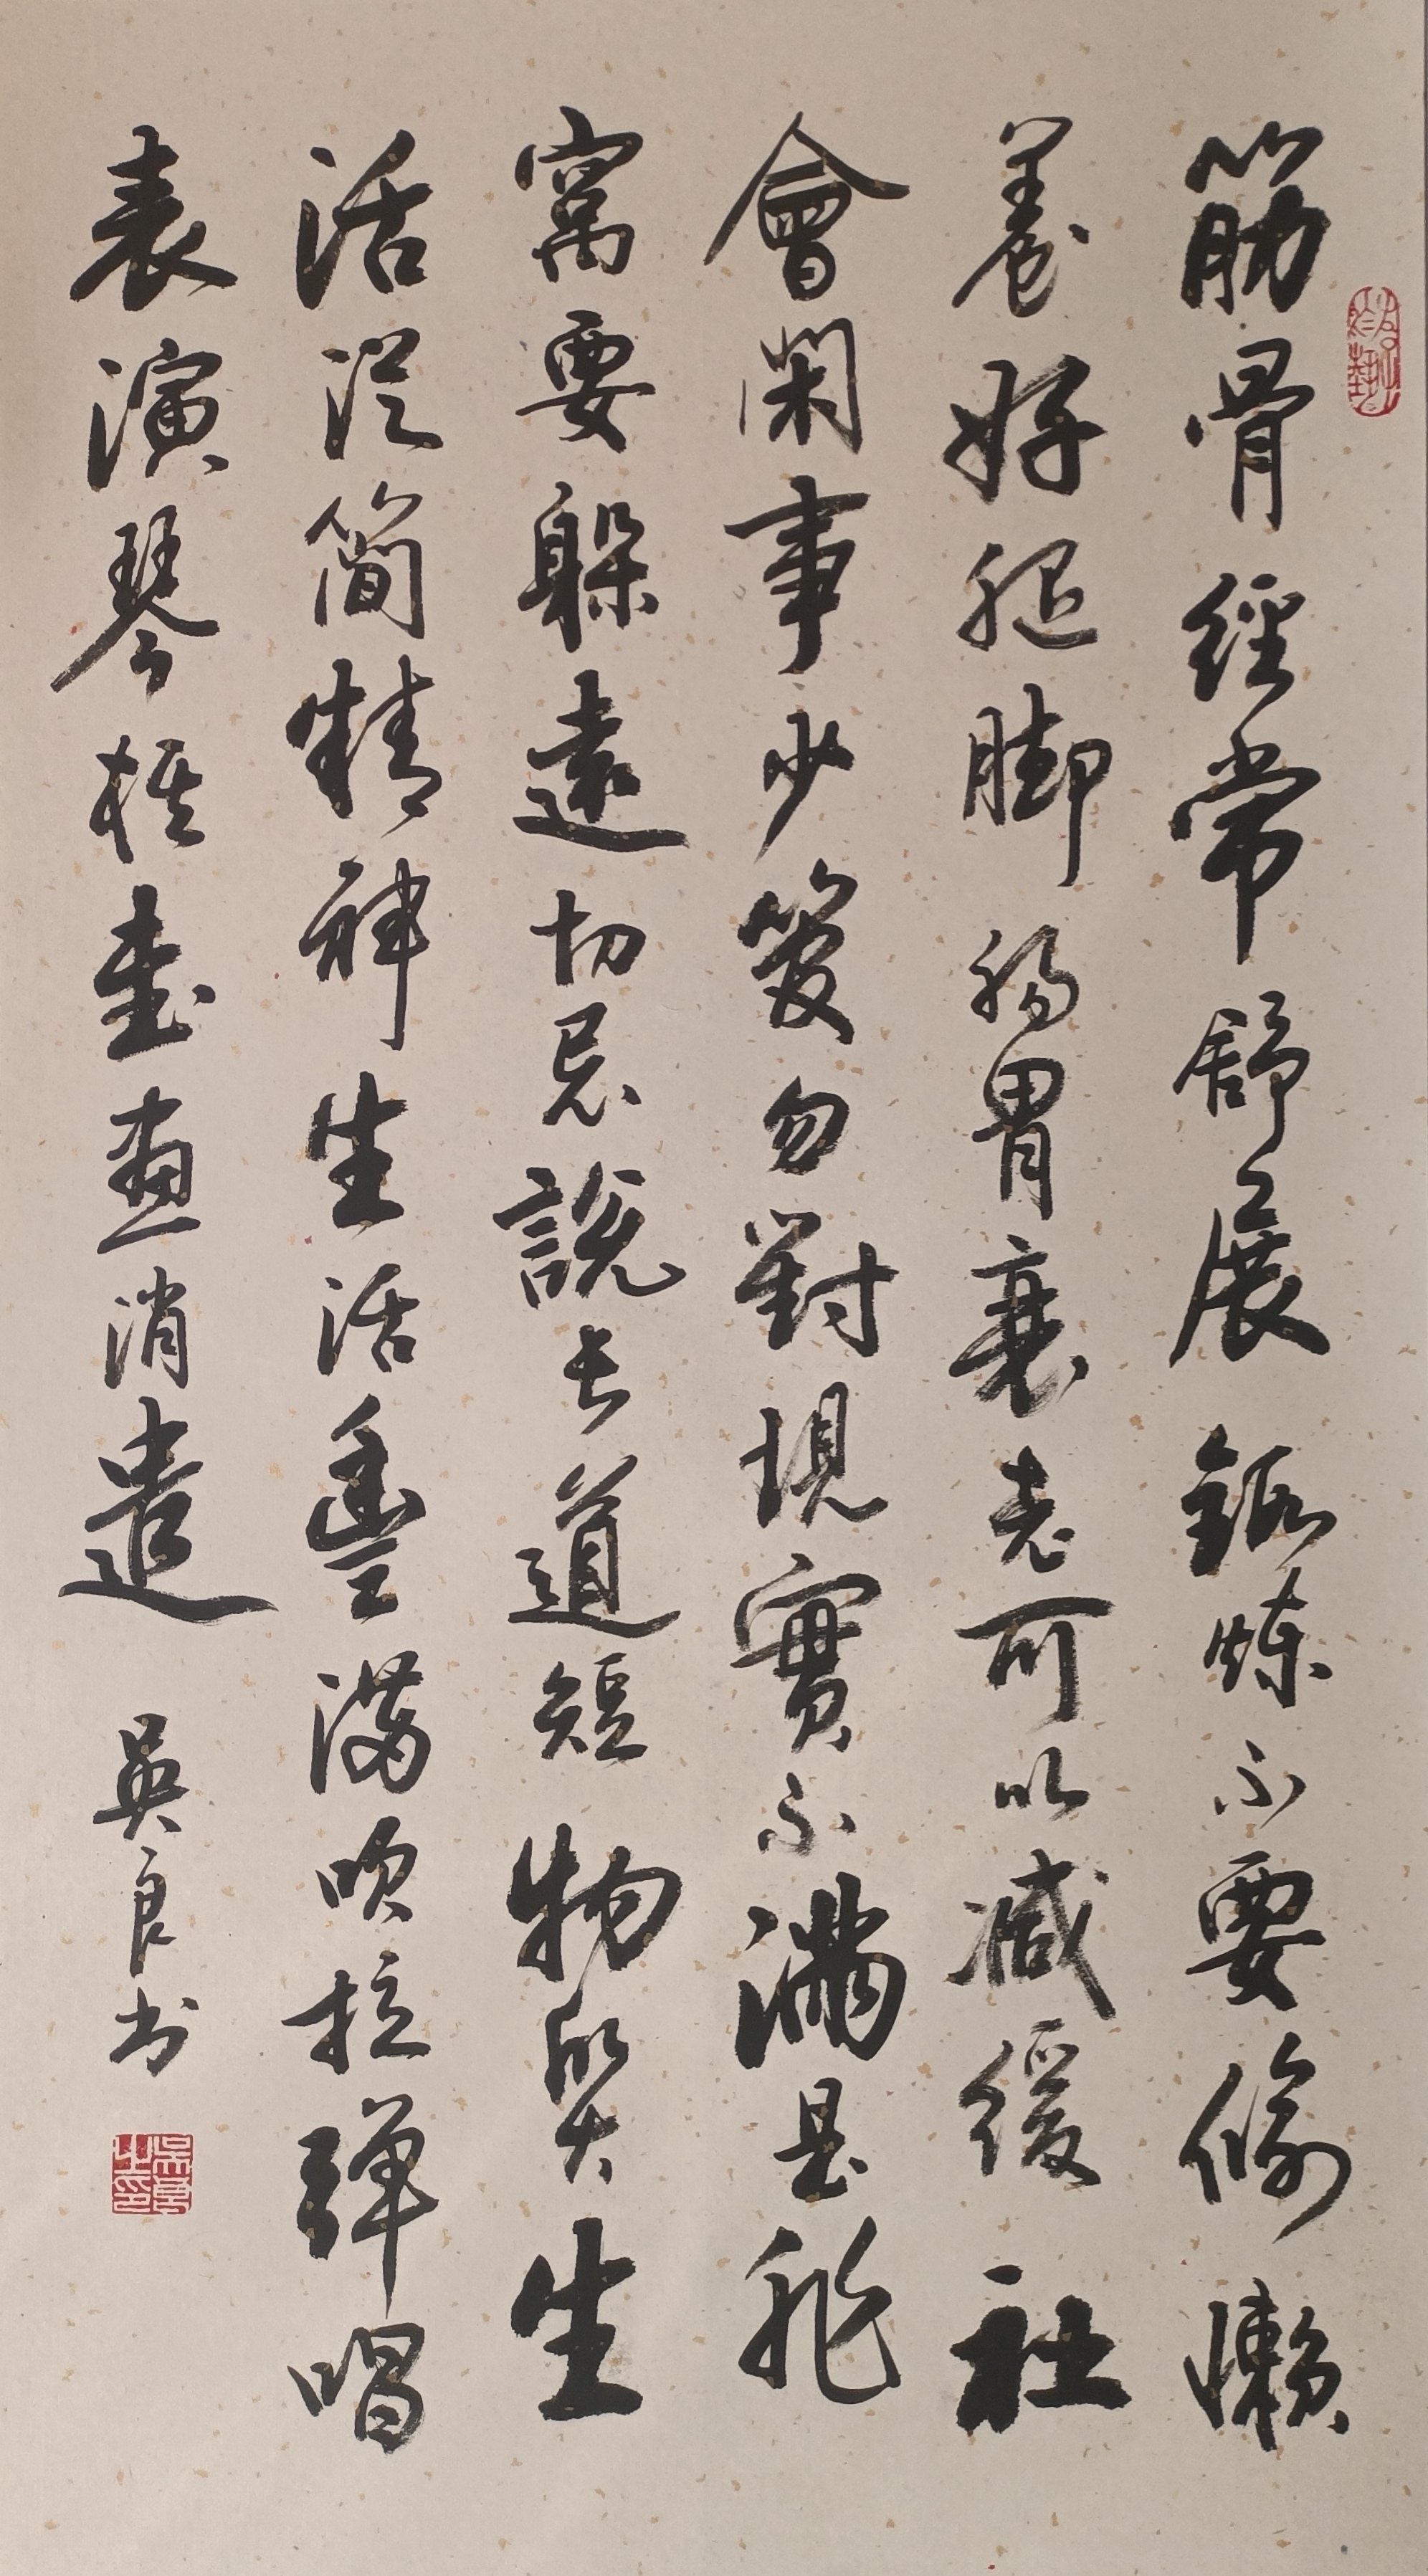 筋骨經常舒展鍛炼不要偷懶
養好腿脚肠胃衰老可以减緩社
會閑事少管勿對現實不满是非
窝要躲遠切忌說长道短物質生
活從簡精神生活豐满吹拉弹唱
表演琴棋書畫消遣
吳良书